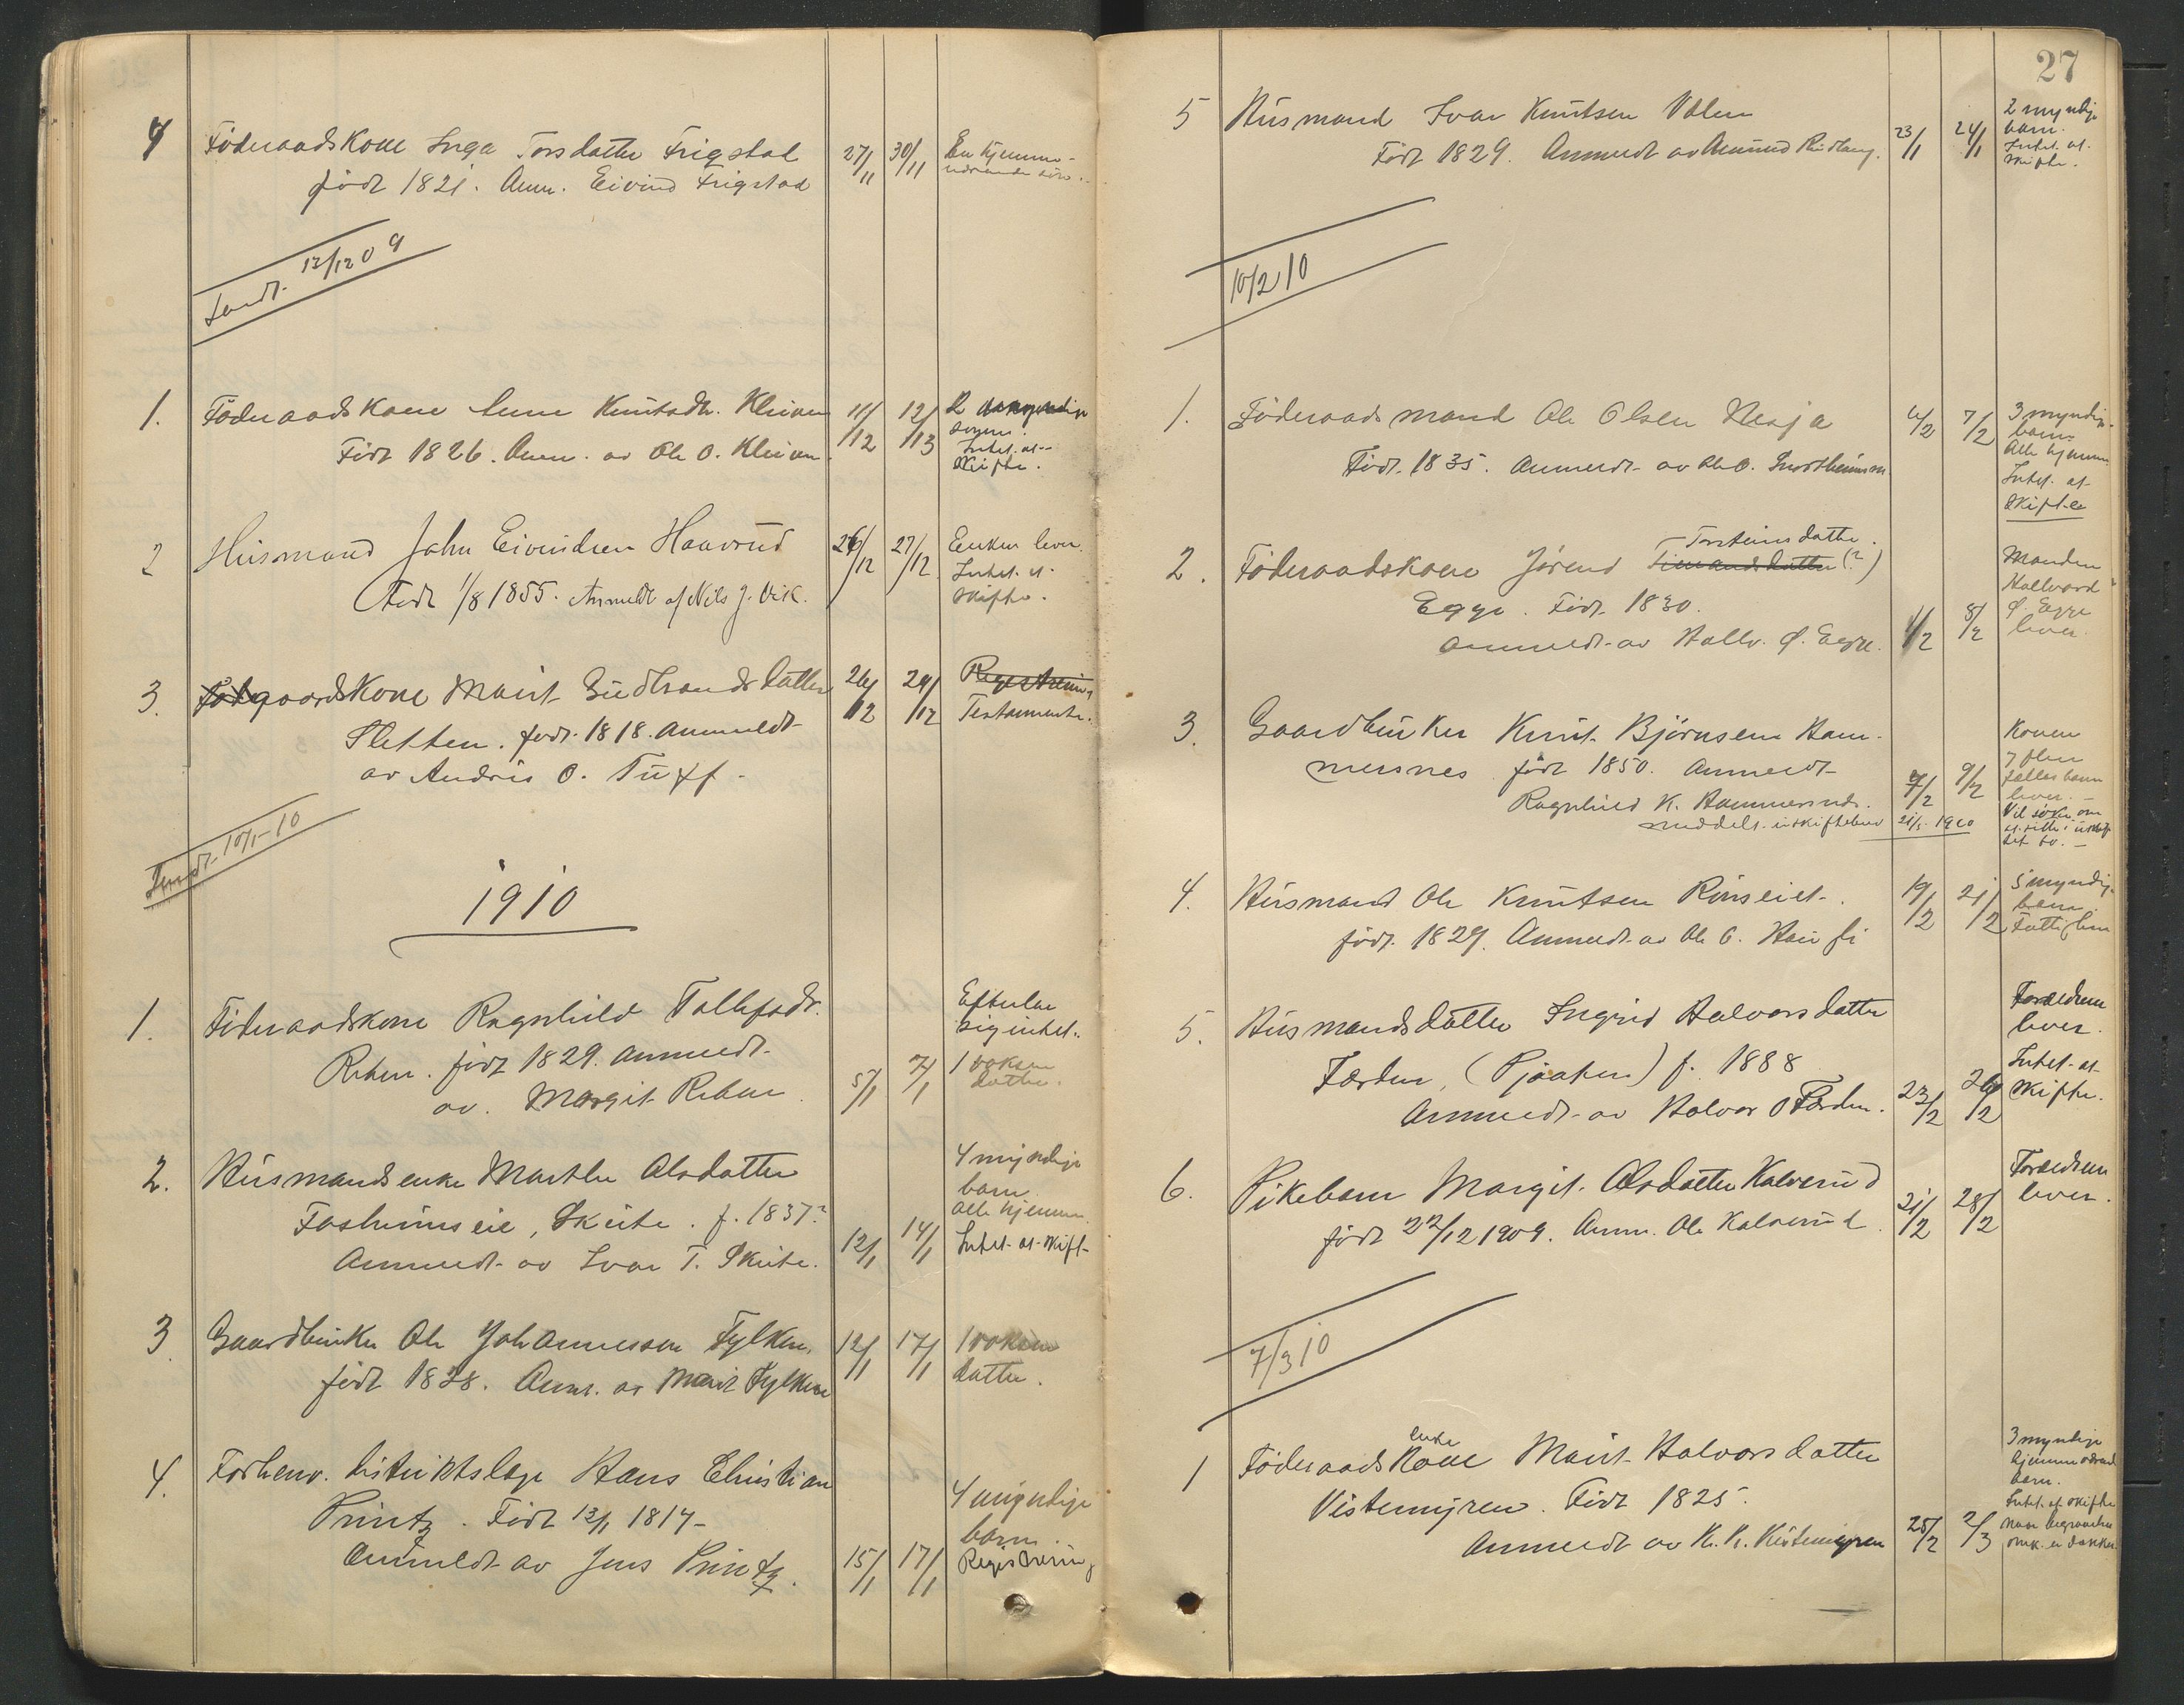 4 Föderaadskone Inga Torsdatter Frigstad 27/11 30/11 En hjemme-
född 1821. Anm. Eivind Frigstad
Sendt 12/12 09
1. Föderaadskone Anne Knutsdtr. Kleiven 11/12 12/13 2
Född 1826. Anm. av Ole O. Kleiven Intet at
skifte.
2 Husmand John Eivindsen Haavrud 26/12 27/12 Enken lever.
Född 1/8 1855. Anmeldt af Nils J. Vik. Intet at
skifte.
3. gaardskone Marit Gudbrandsdatter 26/12 29/12 Registrering
Sletten. född 1818. Anmeldt Testamente.
av Andris O. Tuff
Sendt 10/1-10
1910
1. Föderaadskone Ragnhild Tollefsdr. Efterlar
sig intet.
Reten. född 1829. Anmeldt 5/1 7/1 1 voksen
av Margit Reten datter.
2. Husmandsenke Marthe Olsdatter 4 myndige
barn.
Fosheimseie, Skute. f. 1837? Alle hjemme.
Anmeldt av Ivar T. Skute. 12/1 14/1 Intet at skift
3 Gaardbruker Ole Johannessen Fylken. 12/1 17/1 1 voksen
född 1828. Anm. av Marit Fylken datter.
4. Forhenv. distriktslæge Hans Christian
Printz. Född 13/1 1817- 4 myndige
barn.
Anmeldt av Jens Printz. 15/1 17/1 Registrering
27
5 Husmand Ivar Knutsen Volen 23/1 24/1 2 myndige
barn.
Född 1829. Anmeldt av Amund Intet at
skifte.
10/2 10
1. Föderaadsmand Ole Olsen Nesja 4/2 7/2 3 myndige
barn.
Född 1835. Anmeldt av Ole O. Alle hjemme
Intet at
skifte
Torsteinsdatter.
2. Föderaadskone Jörend (?) Manden
Hallvord
Egge. Född 1830. Ø. Egge
Anmeldt av Hallv. Ø. Egge. 4/2 8/2 lever.
3. Gaardbruker Knut Björnsen Ham- Konen
mersnes. född 1850. Anmeldt 7 flere
fælles barn
Ragnhild K. Hammersnes. 7/2 9/2 lever. -
meddelt uskiftebev 21/5-1910 Vil söke om
at sitte i uskif-
tet bo. -
4. Husmand Ole Knutsen Rönseiet. 19/2 21/2 5 myndige
barn.
född 1829. Anmeldt av Ole O. Fattiglem
5. Husmandsdatter Ingrid Halvorsdatter Forældrene
lever.
Færden, (Pjaaken) f. 1888 Intet at
Anmeldt av Halvor O Færden. 23/2 26/2 skifte.
6. Pikebarn Margit Olsdatter Kalverud Forældrene
född 22/12 1909. Anm. Ole Kalverud 21/2 28/2 lever.
7/3 10
enke
1 Föderaadskone Marit Halvorsdatter 3 myndige
hjemmeværende
barn.
Vistemyren. Född 1825. Intet at skifte
Anmeldt av K. K. Vistemyren 25/2 2/3 naar begravelses
omk. er dækket.